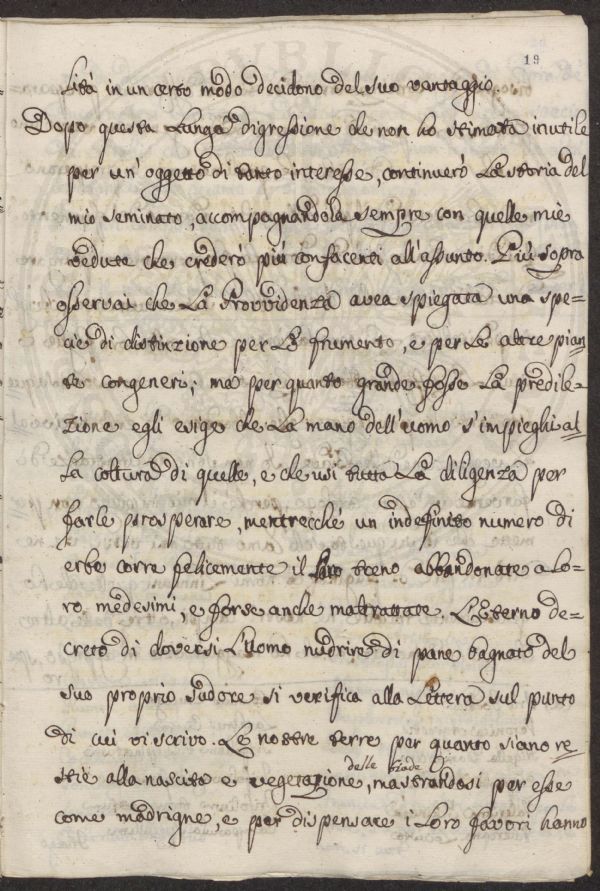 19
lità in un certo modo decidono del suo vantaggio.
Dopo questa lunga digressione che non ho stimata inutile
per un' oggetto di tanto interesse, continuerò la storia del
mio seminato, accompagnandola sempre con quelle mie
vedute che crederò più confacenti all'assunto. Più sopra
osservai che la Provvidenza avea spiegata una spe=
cie di distinzione per lo frumento, e per le altre pian=
te congeneri; ma per quanto grande fosse la predile=
zione egli esige che la mano dell'uomo s'impieghi al=
la coltura di quelle, e che usi tutta la diligenza per
farle prosperare, mentrecchè un indeffinito numero di
erbe corre felicemente il loro steno abbandonate a lo=
ro medesimi, e forse anche maltrattate. L'Eterno de=
creto di doversi l'uomo nudrire di pane bagnato del
suo proprio sudore si verifica alla lettera sul punto
di cui vi scrivo. Le nostre terre per quanto siano re=
stie alla nascita e vegetazione, mostrandosi per esse
delle biade
come madrigne, e per dispensare i loro favori hanno